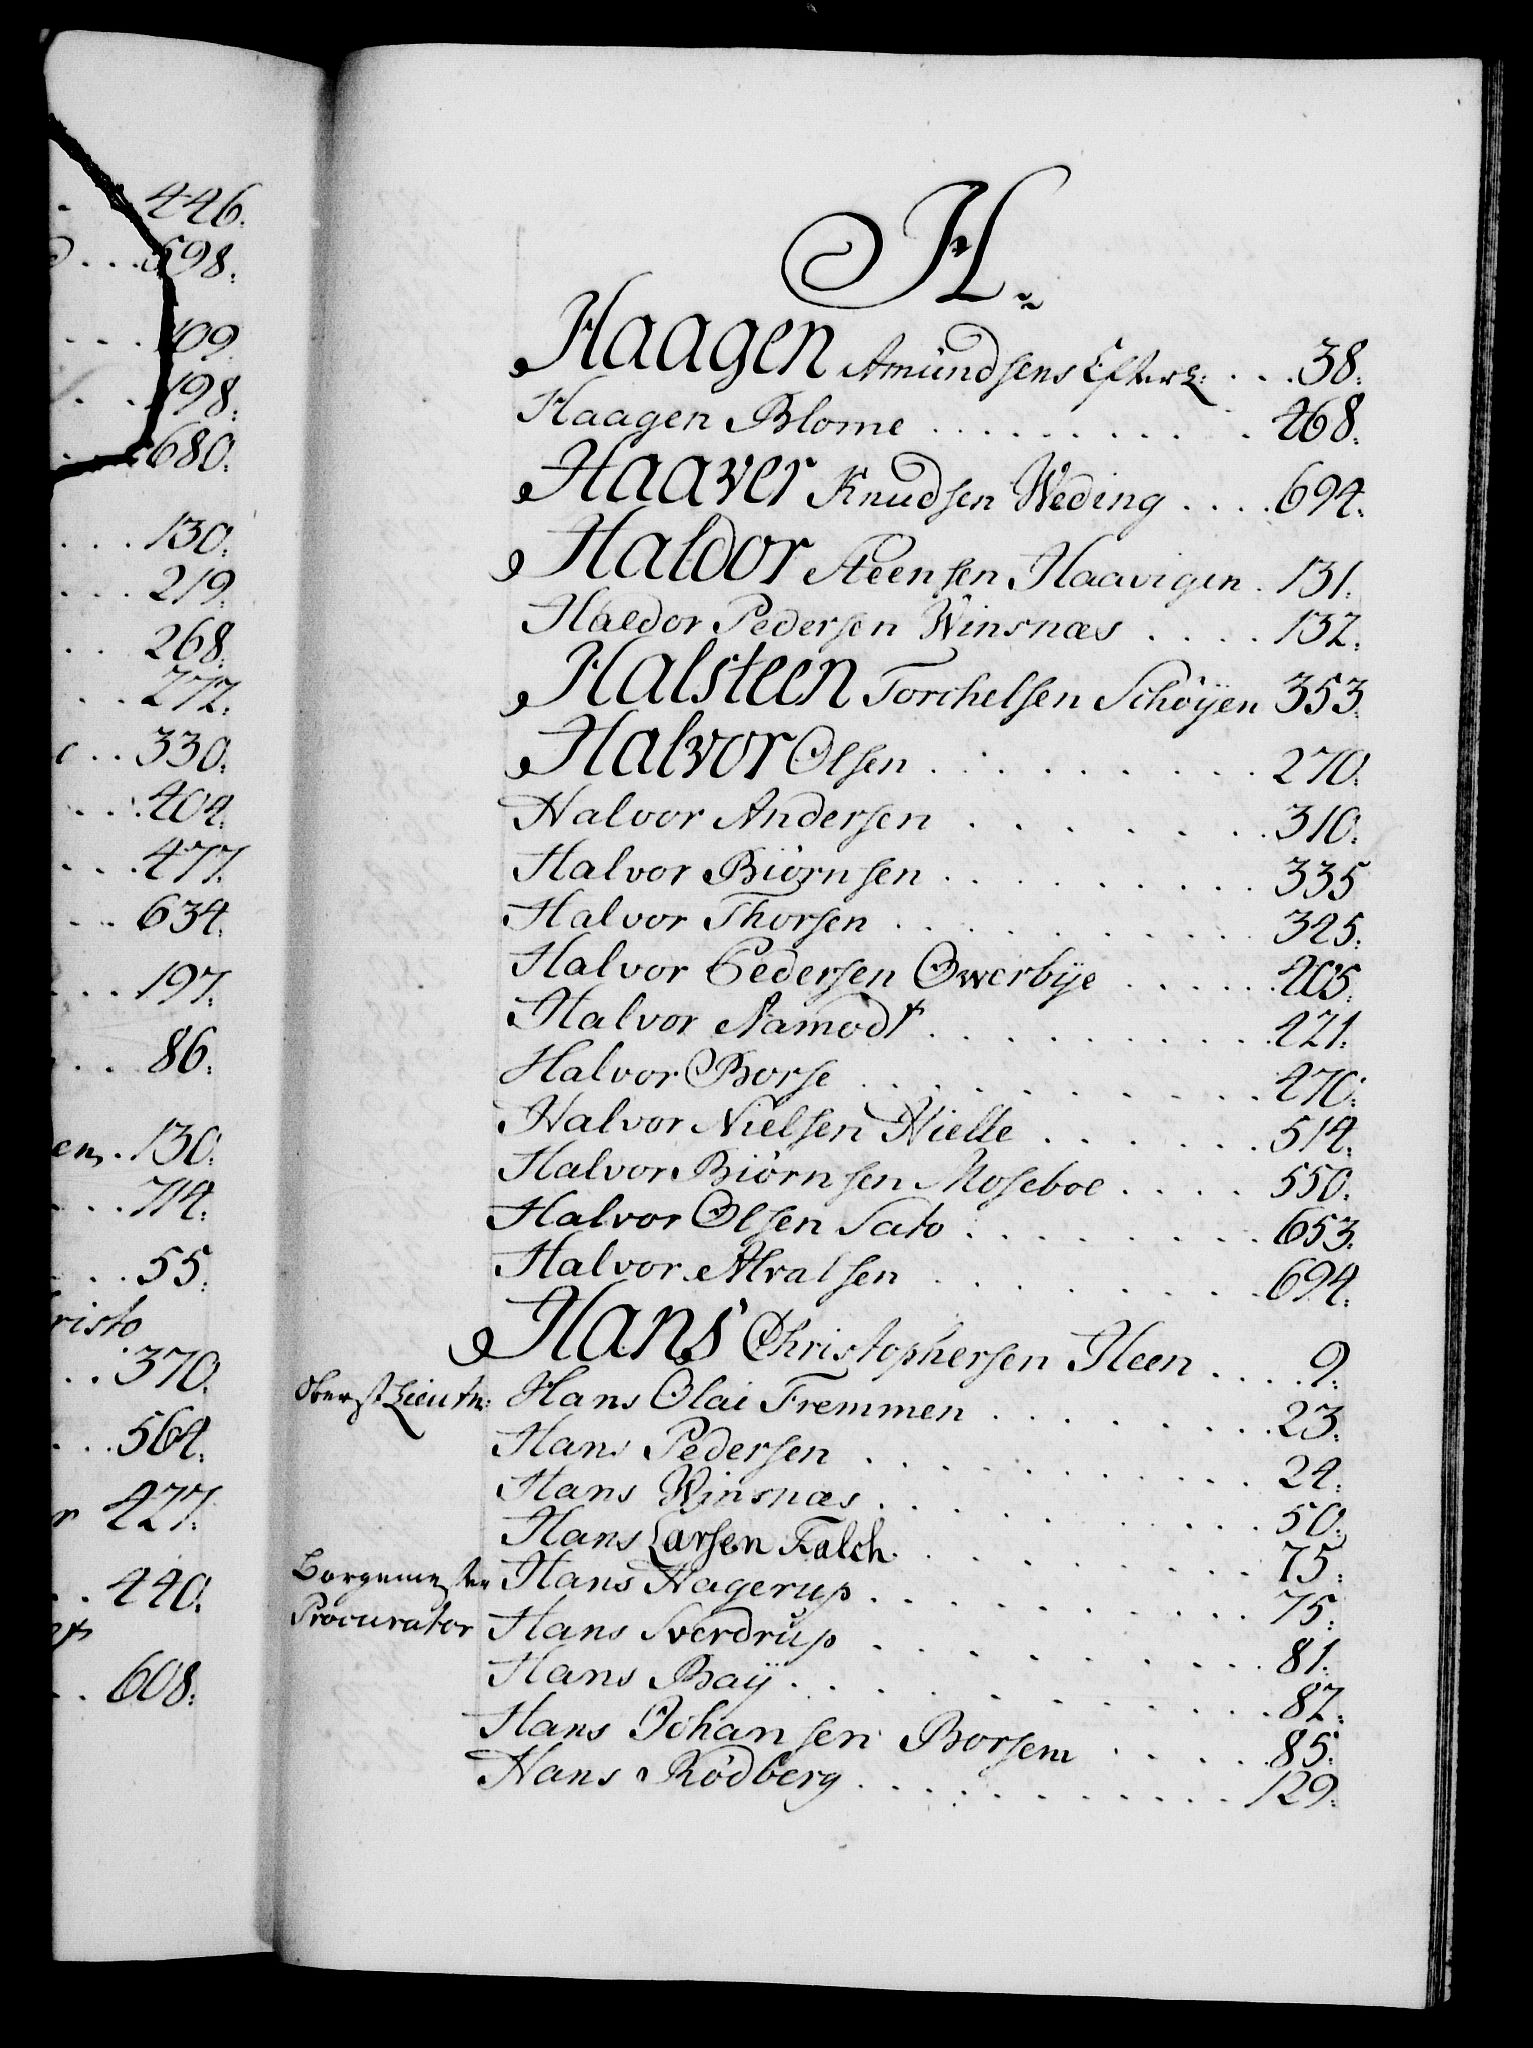 446.
598.
109.
198.
680.
130.
219.
268.
272.
330.
404.
477.
634.
197.
86.
en, . 130.
714.
55.
risto
370.
564.
r 427.
440.
608.
H.
Haagen Amündsens Efterl: . . . 38.
Haagen Blome . . . . . . . . . 468.
Haaver Knudsen Weding . . . . 694.
Haldor Steensen Haavigen . 131.
Haldor Pedersen Winsnæs . . . . 132.
Halsteen Torchelsen Schöÿen 353.
Halvor Olsen . . . . . . . . . 270.
Halvor Andersen . . . . . . . 310.
Halvor Biörnsen . . . . . . . . . 335
Halvor Thorsen . . . . . . . . . 325.
Halvor Pedersen Owerbÿe . . . . . 405.
Halvor Aamodt . . . . . . . . . 421.
Halvor Borse . . . . . . . . . 470.
Halvor Nielsen Hielle . . . . . . 514.
Halvor Biörnsen Moseboe . . . . 550.
Halvor Olsen Sato . . . . . . . . 653.
Halvor Alvalsen . . . . . . . . 694.
Hans Christophersen Heen . . . . 9.
Oberst Lieutn: Hans Olai Fremmen . . . . . . . 23.
Hans Pedersen . . . . . . . . . 24.
Hans Winsnæs . . . . . . . . . 50.
Hans Larsen Falch . . . . . . . . 75.
Borgemester Hans Hagerup . . . . . . . . . 75.
Procurator Hans Sverdrup . . . . . . . . . 81.
Hans Baÿ . . . . . . . . . . 82.
Hans Johansen Borsem . . . . . 85.
Hans Rödberg . . . . . . . . . 129.